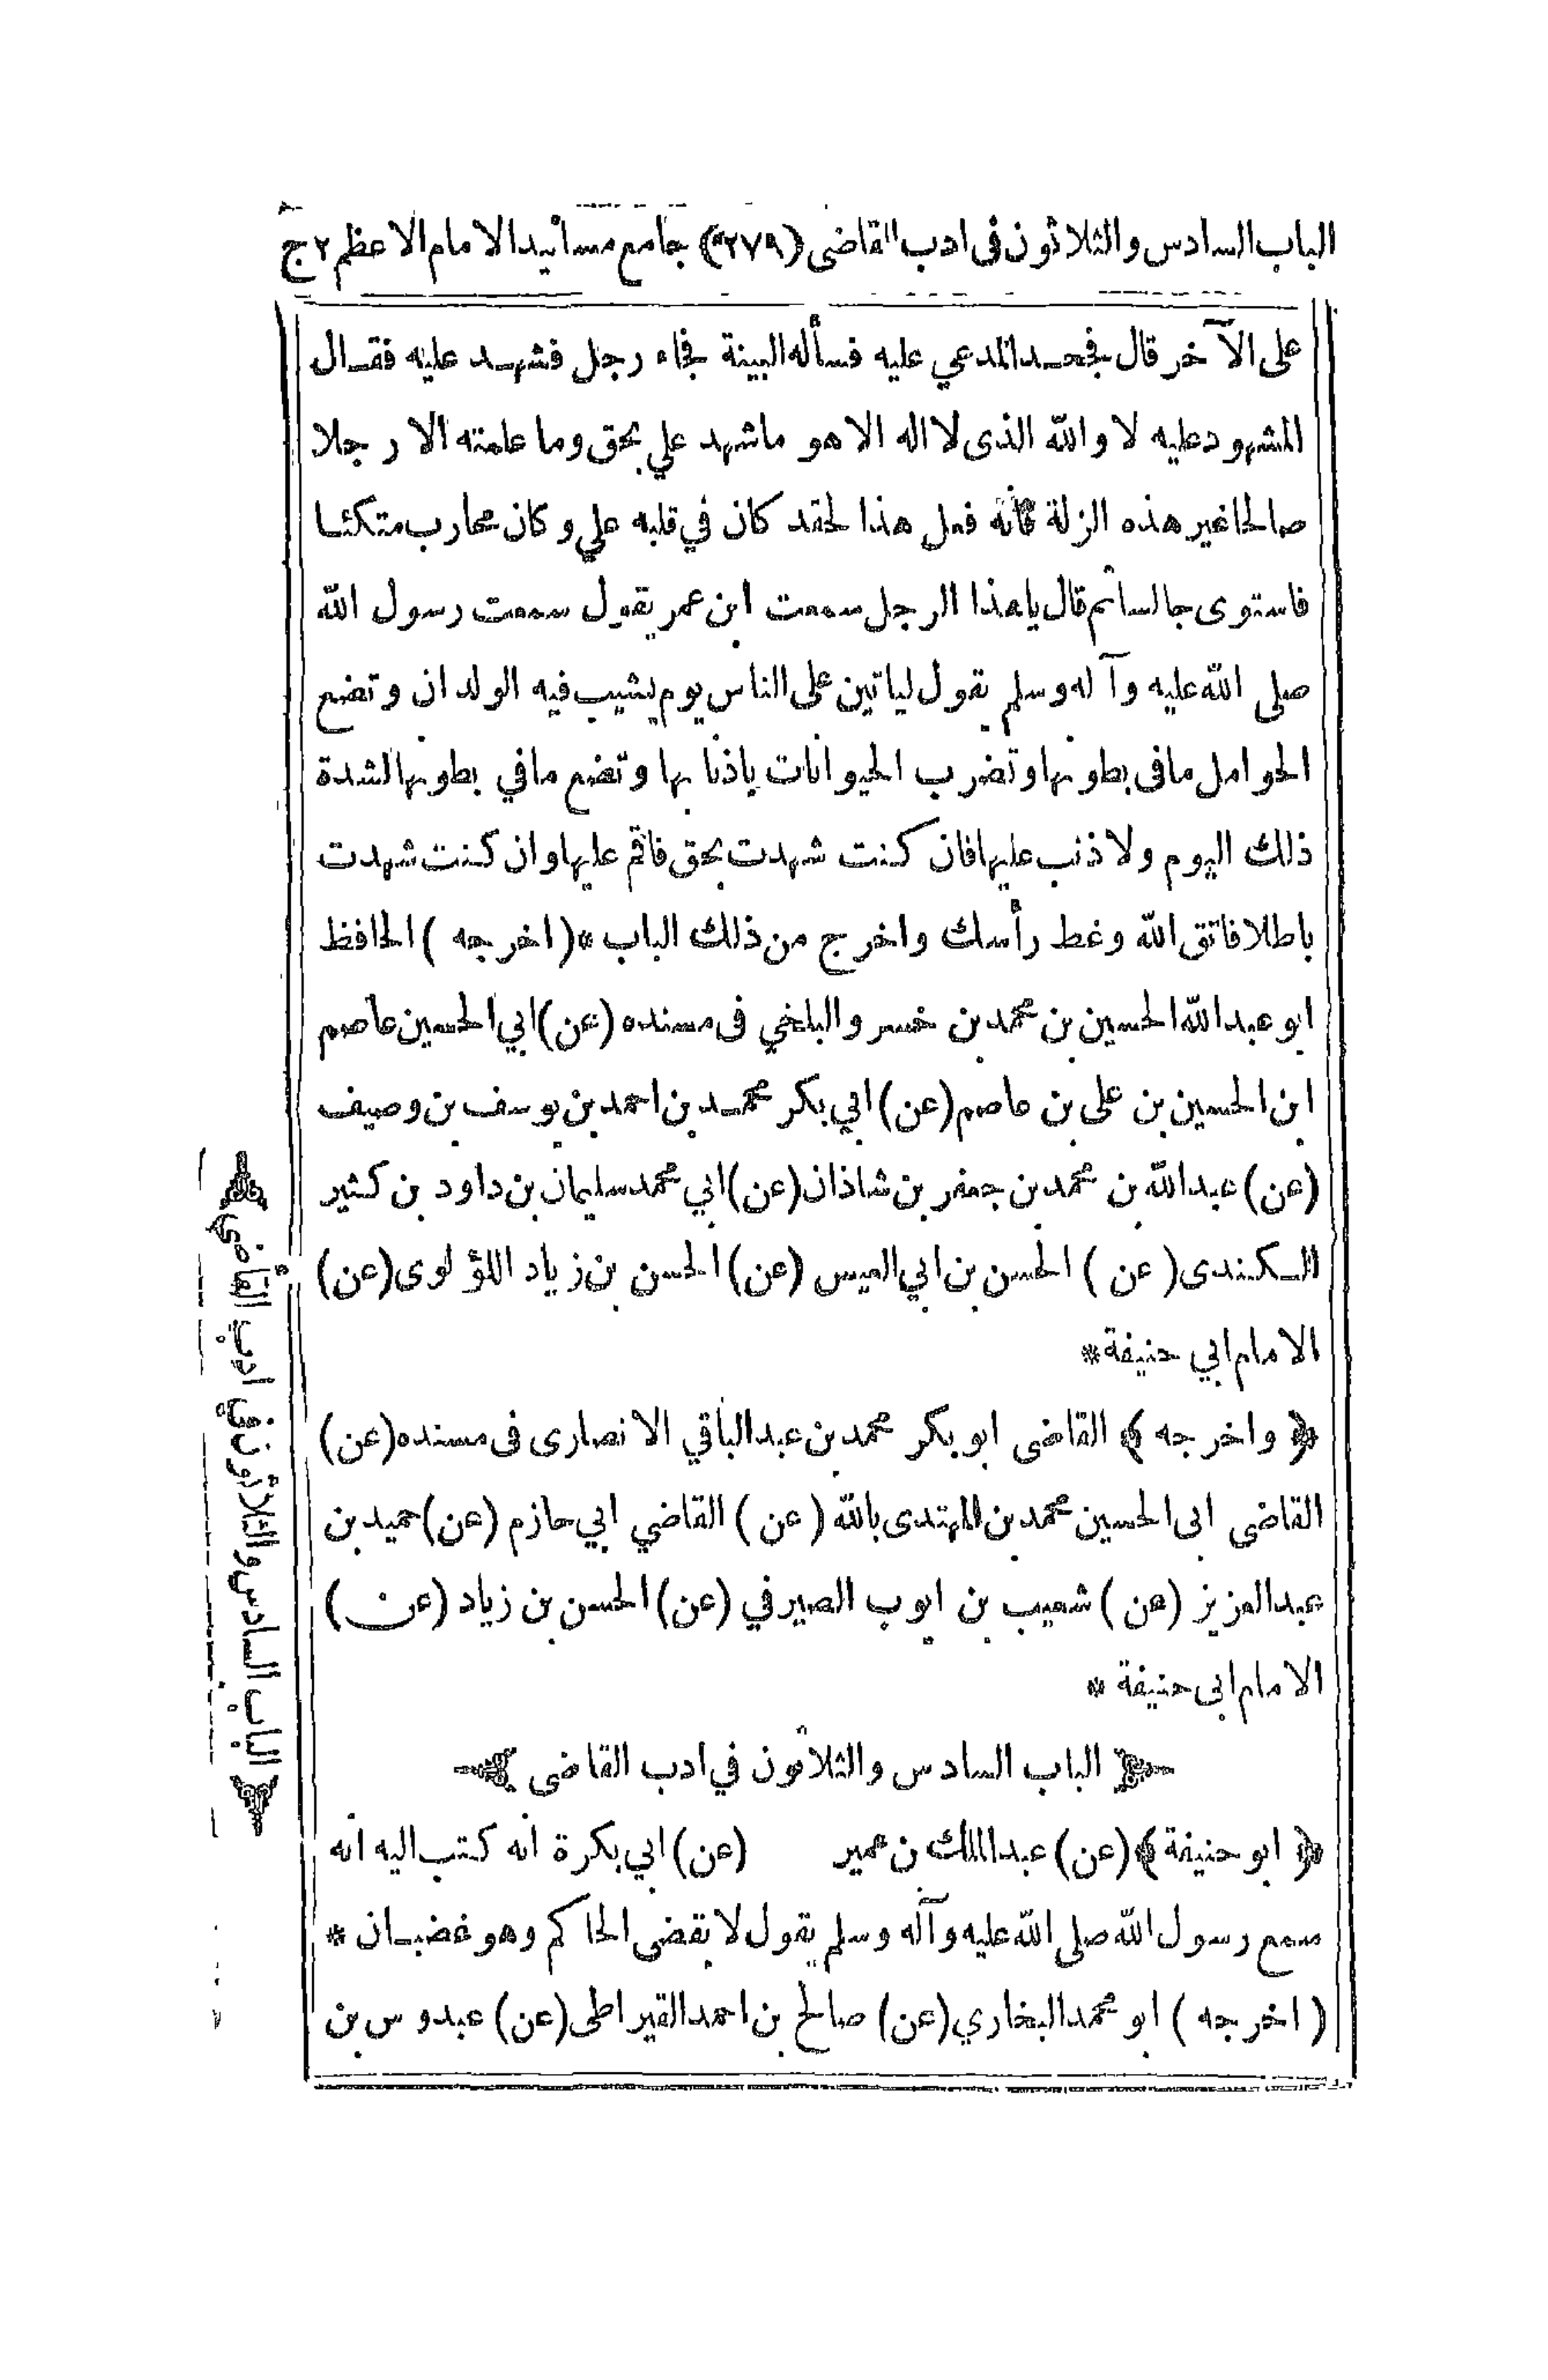 الباب السادس والثلاثون فى ادب القاضى (٢٧٩) جامع مسانيد الامام الاعظم ٢ج
على الآخر قال فجحد المدعي عليه فسأله البينة فجاء رجل فشهد عليه فقال
المشهود عليه لا والله الذى لا اله الا هو ماشهد علي بحق وما علمته الا رجلا
صالحا غير هذه الزلة فانه فعل هذا لحقد كان في قلبه علي وكان محارب متكئا
فاستوى جالسا ثم قال ياهذا الرجل سمعت ابن عمر يقول سمعت رسول الله
صلى الله عليه وآله وسلم يقول لياتين على الناس يوم يشيب فيه الولدان وتضع
الحوامل مافى بطونها وتضرب الحيوانات باذنابها وتضع مافي بطونها لشدة
ذلك اليوم ولا ذنب عليها فان كنت شهدت بحق فاقم عليها وان كنت شهدت
باطلا فاتق الله وغط رأسك واخرج من ذلك الباب * (اخرجه) الحافظ
ابو عبد الله الحسين بن محمد بن خسرو البلخي فى مسنده (عن) ابي الحسين عاصم
ابن الحسين بن على بن عاصم (عن) ابي بكر محمد بن احمد بن يوسف بن وصيف
(عن) عبد الله بن محمد بن جعفر بن شاذان (عن) ابي محمد سليمان بن داود بن كثير
الكندى (عن) الحسن بن ابي العيس (عن) الحسن بن زياد اللؤلوى (عن)
الامام ابي حنيفة *
﴿ واخرجه ﴾ القاضى ابو بكر محمد بن عبد الباقي الانصارى فى مسنده (عن)
القاضى ابى الحسين محمد بن المهتدى بالله (عن) القاضي ابي حازم (عن) حميد بن
عبد العزيز (عن) شعيب بن ايوب الصيرفي (عن) الحسن بن زياد (عن)
الامام ابى حنيفة *
الباب السادس والثلاثون في ادب القاضى
﴿ ابو حنيفة ﴾ (عن) عبد الملك بن عمير (عن) ابي بكرة انه كتب اليه انه
سمع رسول الله صلى الله عليه وآله وسلم يقول لا يقضى الحاكم وهو غضبان *
(اخرجه) ابو محمد البخاري (عن) صالح بن احمد القيراطى (عن) عبدوس بن
الباب السادس والثلاثون في ادب القاضي